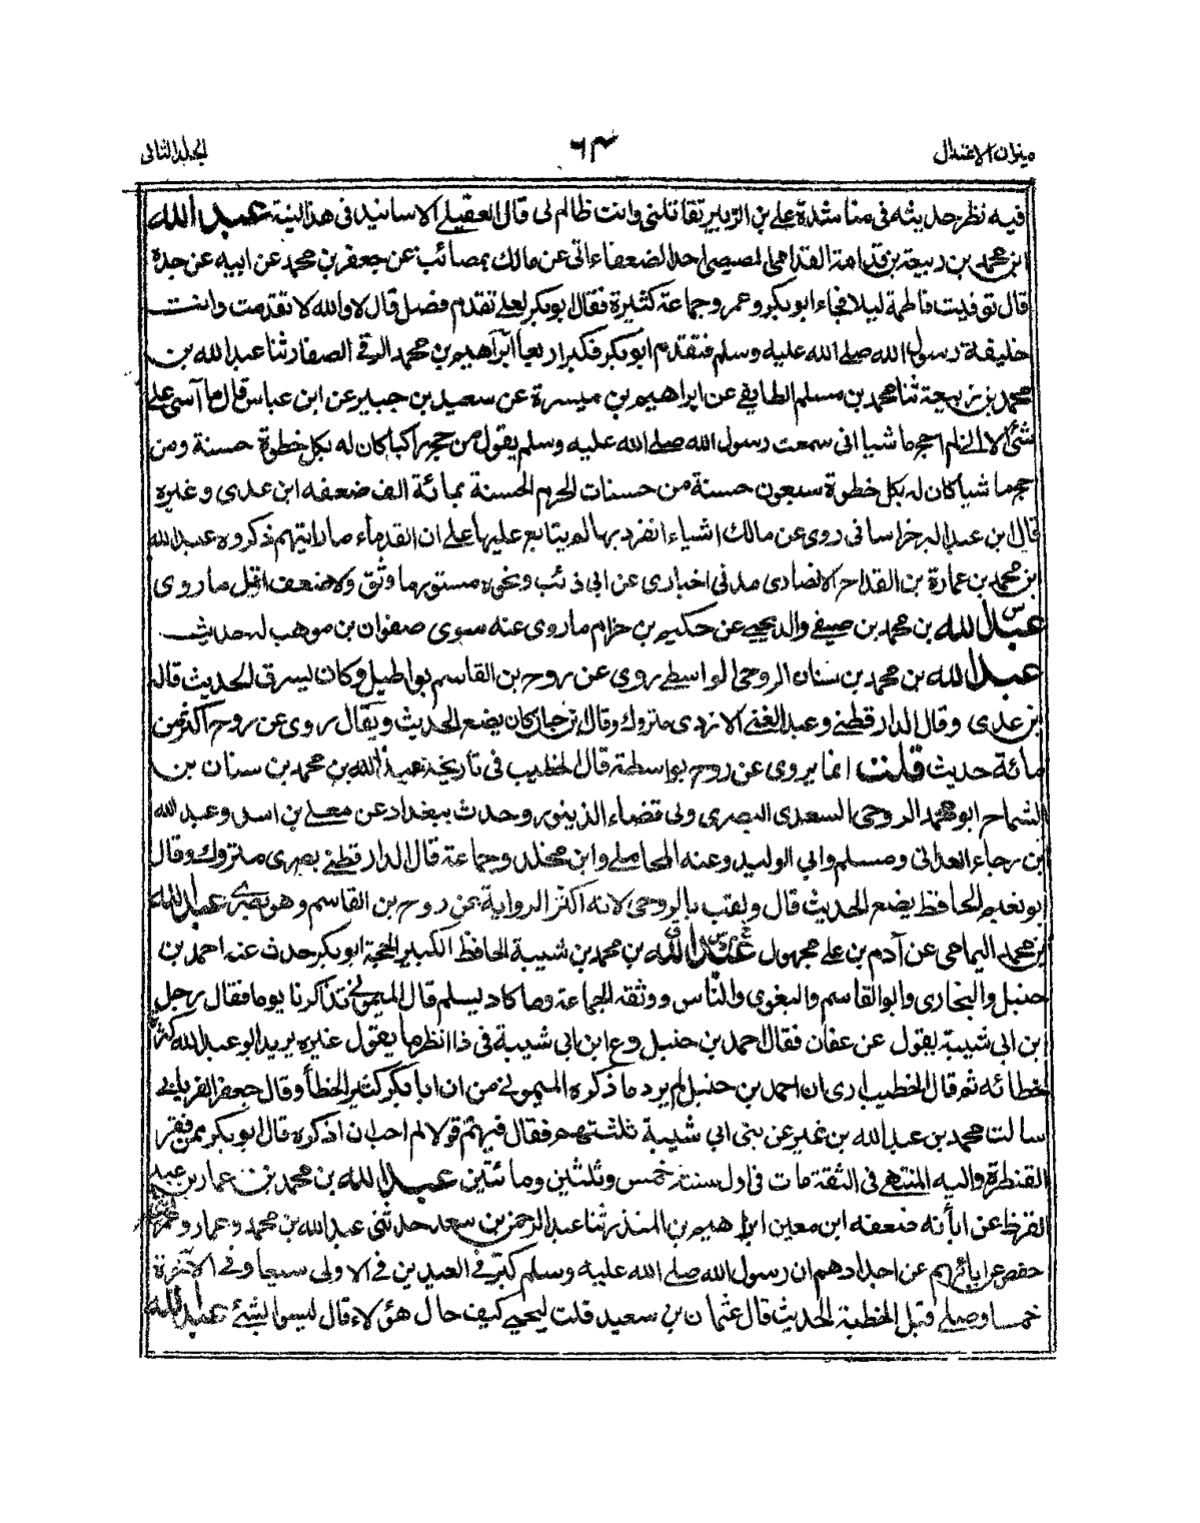 ميزان الاعتدال
٦٣
الجلد الثانى
فيه نظر حديثه فى مناشدة على بن الزبير تقاتلنى وانت ظالم لى قال العقيلى الاسانيد فى هذا لينة عبد الله
ابن محمد بن ربيعة بن قدامة القدامى المصيصى احد الضعفاء اتى عن مالك بمصائب عن جعفر بن محمد عن ابيه عن جده
قال توفيت فاطمة ليلا فجاء ابو بكر و عمر و جماعة كثيرة فقال ابو بكر لعلى تقدم فصل قال لا والله لا تقدمت وانت
خليفة رسول الله صلى الله عليه وسلم فتقدم ابو بكر فكبر اربعا ابراهيم بن محمد الرقى الصفار ثنا عبد الله بن
محمد بن ربيعة ثنا محمد بن مسلم الطايفى عن ابراهيم بن ميسرة عن سعيد بن جبير عن ابن عباس قال ما آسى على
شئ الا انى لم احج ماشيا انى سمعت رسول الله صلى الله عليه وسلم يقول من حج راكبا كان له بكل خطوة حسنة ومن
حج ماشيا كان له بكل خطوة سبعون حسنة من حسنات الحرم الحسنة بمائة الف ضعفه ابن عدى وغيره
قال ابن عبد البر خراسانى روى عن مالك اشياء انفرد بها لم يتابع عليها على ان القدماء ما رايتهم ذكروه عبد الله
ابن محمد بن عمارة بن القداح الانصارى مدنى اخبارى عن ابى ذئب ونحوه مستور ما وثق ولا ضعف اقل ما روى
عبد الله بن محمد بن صيفى والد يحيى عن حكيم بن حزام ما روى عنه سوى صفوان بن موهب له حديث
عبد الله بن محمد بن سنان الروحى الواسطى روى عن روح بن القاسم بواطيل وكان يسرق الحديث قاله
ابن عدى وقال الدارقطنى وعبد الغنى الازدى متروك وقال ابن حبان كان يضع الحديث ويقال روى عن روح اكثر من
مائة حديث قلت انما يروى عن روح بواسطة قال الخطيب فى تاريخه عبد الله بن محمد بن سنان بن
الشماح ابو محمد الروحى السعدى البصرى ولى قضاء الدينور وحدث ببغداد عن معلى بن اسد وعبد الله
ابن رجاء الغدانى ومسلم وابى الوليد وعنه المحاملى وابن مخلد وجماعة قال الدارقطنى بصرى متروك وقال
ابو نعيم الحافظ يضع الحديث قال ولقب بالروحى لانه اكثر الرواية عن روح بن القاسم وهو بصرى عبد الله
ابن محمد اليمامى عن آدم بن على مجهول عبد الله بن محمد بن شيبة الحافظ الكبير الحجة ابو بكر حدث عنه احمد بن
حنبل والبخارى وابو القاسم والبغوى والناس ووثقه الجماعة وما كاد يسلم قال الميمونى تذاكرنا يوما فقال رجل
ابن ابى شيبة يقول عن عفان فقال احمد بن حنبل دع ابن ابى شيبة فى ذا انظر ما يقول غيره يريد ابو عبد الله كثرة
خطائه ثم قال الخطيب ارى ان احمد بن حنبل لم يرد ما ذكره الميمونى من ان ابا بكر كثير الخطأ وقال جعفر الفريابى
سالت محمد بن عبد الله بن نمير عن بنى ابى شيبة ثلثتهم فقال فيهم قولا لم احب ان اذكره قال ابو بكر ممن قفز
القنطرة واليه المنتهى فى الثقة مات فى اول سنة خمس وثلثين ومائتين عبد الله بن محمد بن عمار بن
القرظ عن ابائه ضعفه ابن معين ابراهيم بن المنذر ثنا عبد الرحمن بن سعد حدثنى عبد الله بن محمد وعمار وعمر
حفص عن ابائهم عن اجدادهم ان رسول الله صلى الله عليه وسلم كبر فى العيدين فى الاولى سبعا وفى الآخرة
خمسا وصلى قبل الخطبة الحديث قال عثمان بن سعيد قلت ليحيى كيف حال هؤلاء قال ليسوا بشئ عبد الله